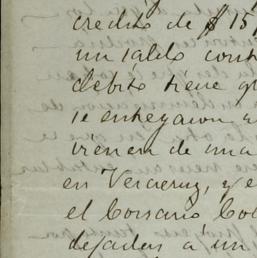 credito de $ 15
un saldo cont
debito tiene q
se entregaron
vienen de una
en Veracruz, y e
el Corsario Co
dejadas a un